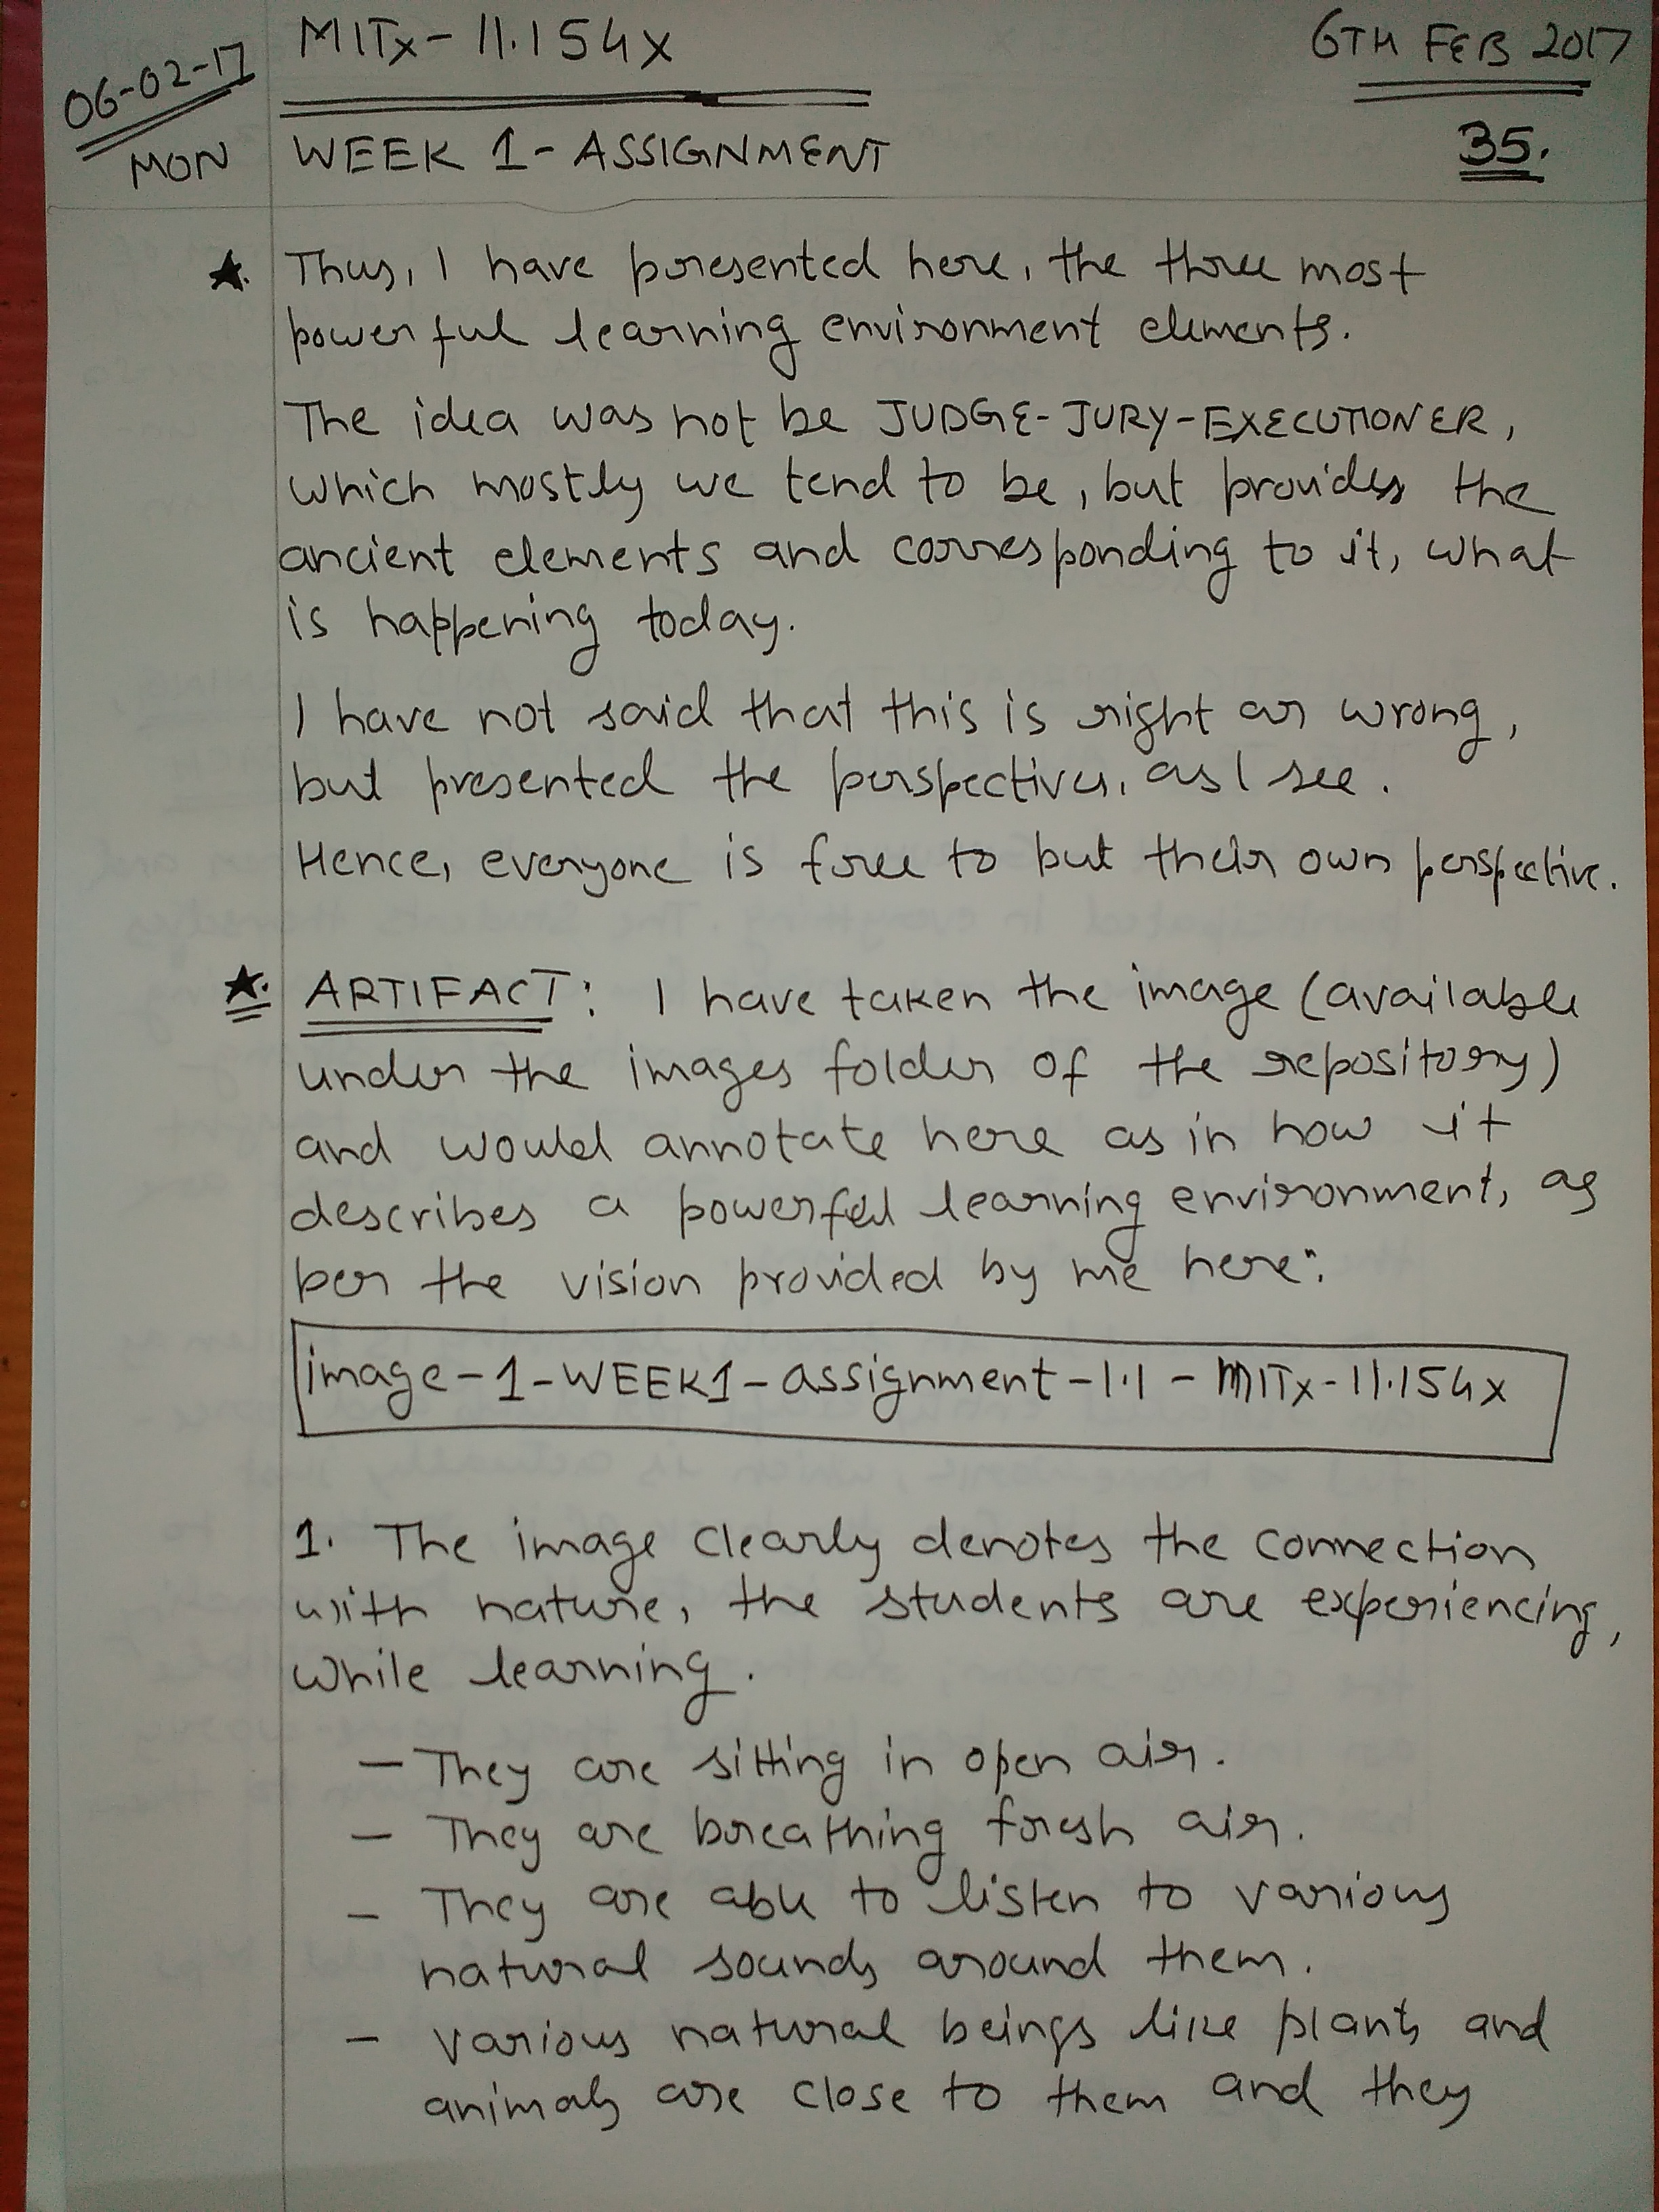 06-02-17
MON
MITx-11.154x
6TH FEB 2017
WEEK 1-ASSIGNMENT
35.
★. Thus, I have presented here, the three most
powerful learning environment elements.
The idea was not be JUDGE-JURY-EXECUTIONER,
which mostly we tend to be, but provides the
ancient elements and corresponding to it, what
is happening today.
I have not said that this is right or wrong,
but presented the perspectives, as I see.
Hence, everyone is free to but their own perspective.
★. ARTIFACT: I have taken the image (available
under the images folder of the repository)
and would annotate here as in how it
describes a powerful learning environment, as
per the vision provided by me here:
image-1-WEEK1-assignment-1.1-MITx-11.154x
1. The image clearly denotes the connection
with nature, the students are experiencing,
while learning.
- They are sitting in open air.
- They are breathing fresh air.
- They are able to listen to various
natural sounds around them.
- various natural beings like plants and
animals are close to them and they